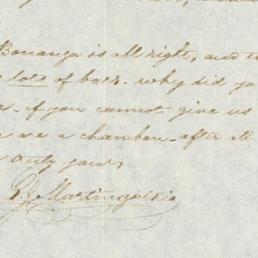 Bonanga is all right, and
lots of bars. why did yo
if you cannot give us
are a chambon. after
only yours
P. J. Martingalkie